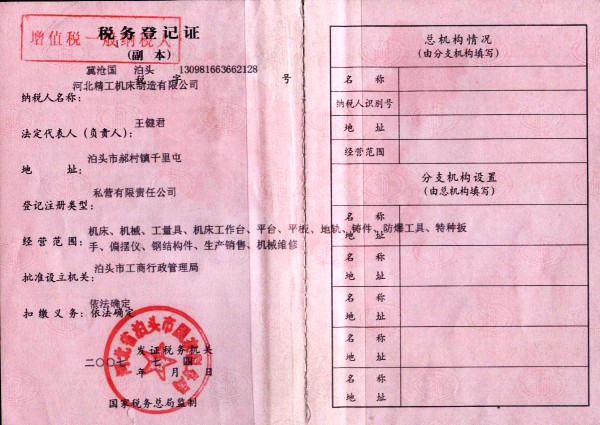 税务登记证
增值税一般纳税人
(副本)
冀沧国 泊头 130981663662128
税 字 号
河北精工机床制造有限公司
纳税人名称:
王健君
法定代表人(负责人):
泊头市郝村镇千里屯
地 址:
私营有限责任公司
登记注册类型:
机床、机械、工量具、机床工作台、平台、平板、地轨、铸件、防爆工具、特种扳
经营范围:
手、偏摆仪、钢结构件、生产销售、机械维修
泊头市工商行政管理局
批准设立机关:
依法确定
扣缴义务:依法确定
发证税务机关
二〇〇七 七 四
年 月 日
国家税务总局监制
河北省泊头市国家税务局
总机构情况
(由分支机构填写)
名 称
纳税人识别号
地 址
经营范围
分支机构设置
(由总机构填写)
名 称
地 址
名 称
地 址
名 称
地 址
名 称
地 址
名 称
地 址